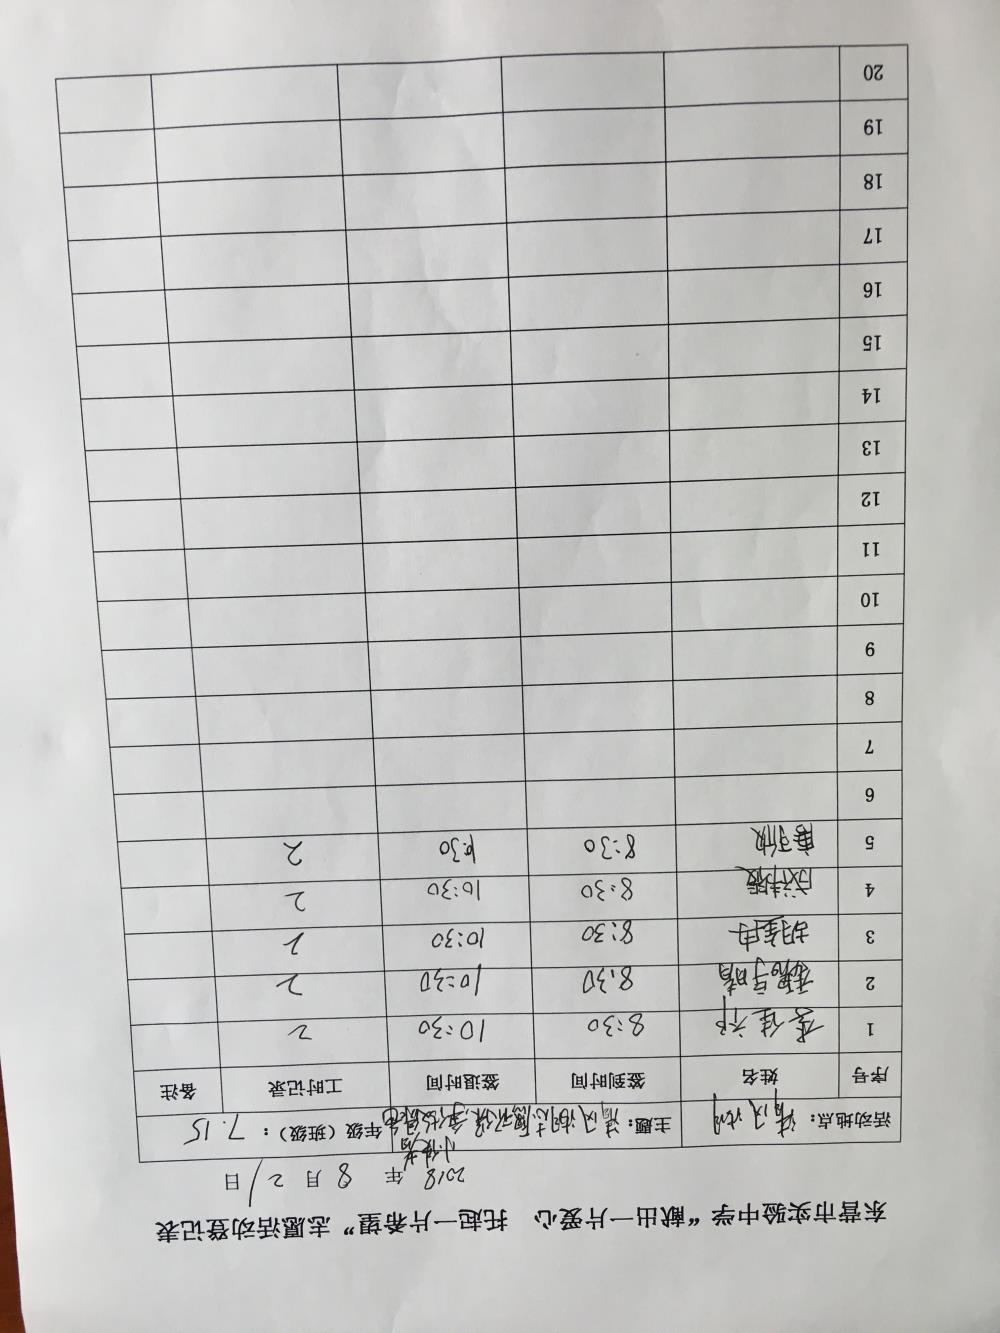 东营市实验中学“献出一片爱心 托起一片希望”志愿活动登记表
2018 年 8 月 21 日
活动地点： 清风湖 主题： 清风湖志愿 年级（班级）： 7.15
小使者
序号 姓名 签到时间 签退时间 工时记录 备注
1 8:30 10:30 2
2 8:30 10:30 2
3 8:30 10:30 2
4 8:30 10:30 2
5 8:30 2
6
7
8
9
10
11
12
13
14
15
16
17
18
19
20